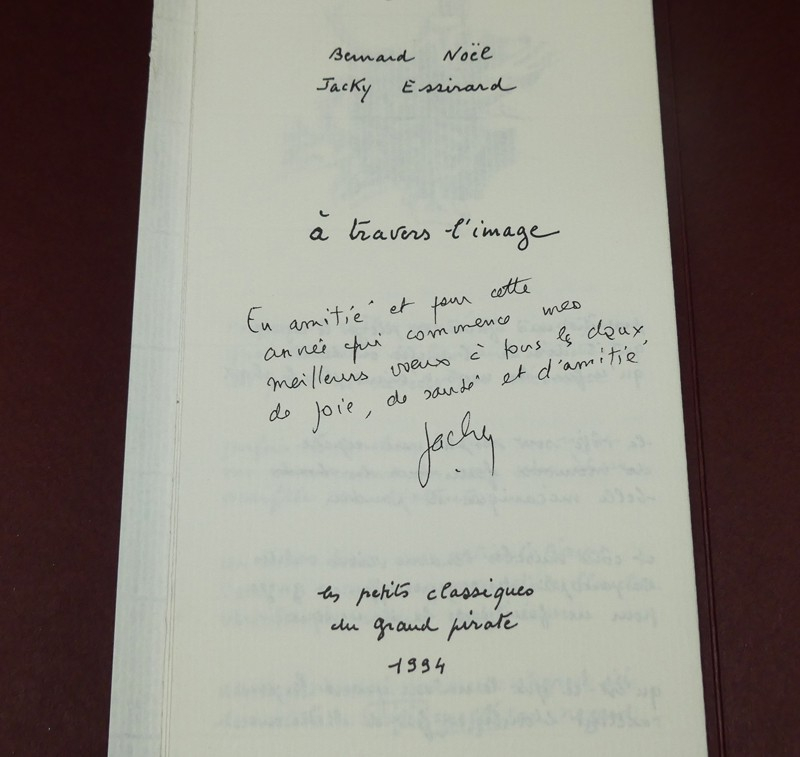 Bernard Noël
Jacky Essirard
à travers l'image
En amitié et pour cette
année qui commence mes
meilleurs voeux à tous les deux,
de joie, de santé et d'amitié
Jacky
les petits classiques
du grand pirate
1994